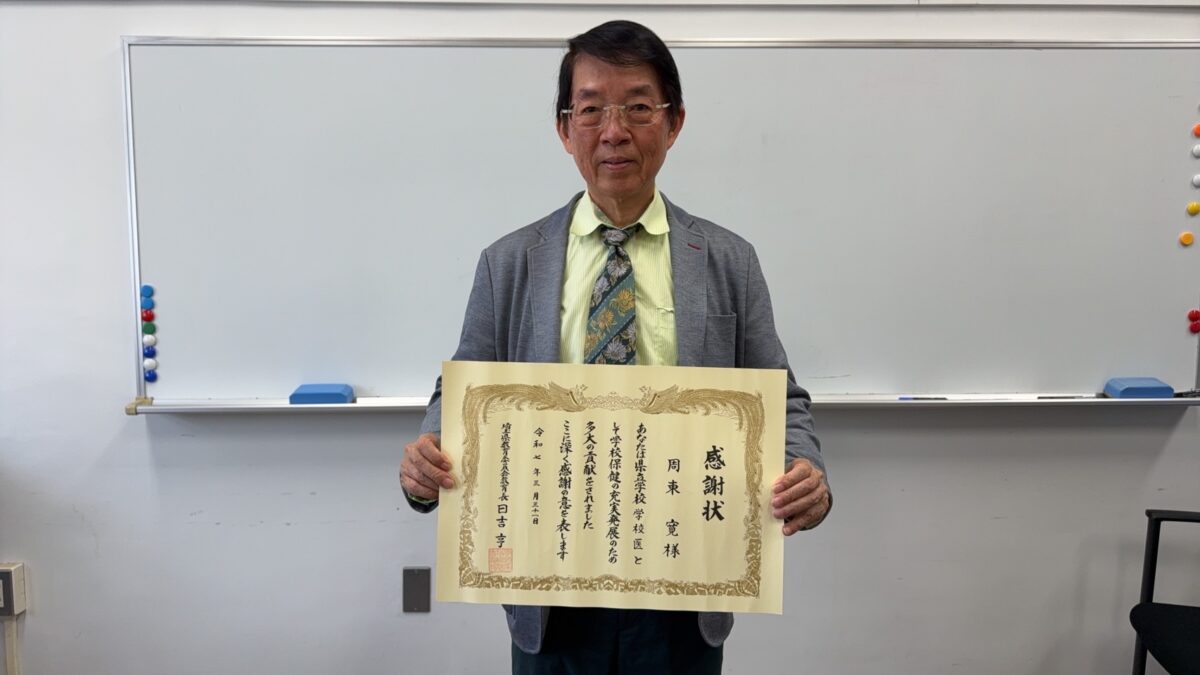 感謝状
周東 寛様
あなたは県立学校 学校医と
して学校保健の充実発展のため
多大の貢献をされました
ここに深く感謝の意を表します
令和七年三月三十一日
埼玉県教育委員会教育長 日吉 亨